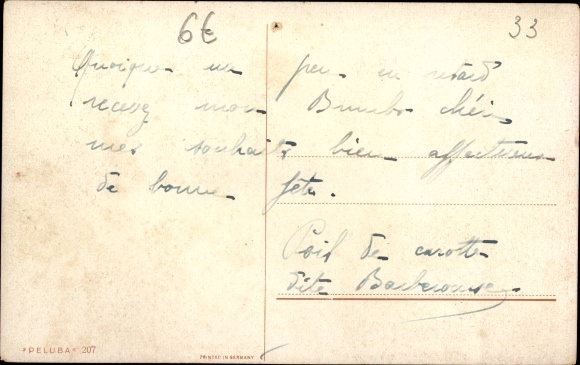 6€
33
Quoique un peu en retard
recevez mon Bumbo chéri
mes souhaits bien affectueux
de bonne fête.
Poil de carotte
dite
"PELUBA" 207
PRINTED IN GERMANY